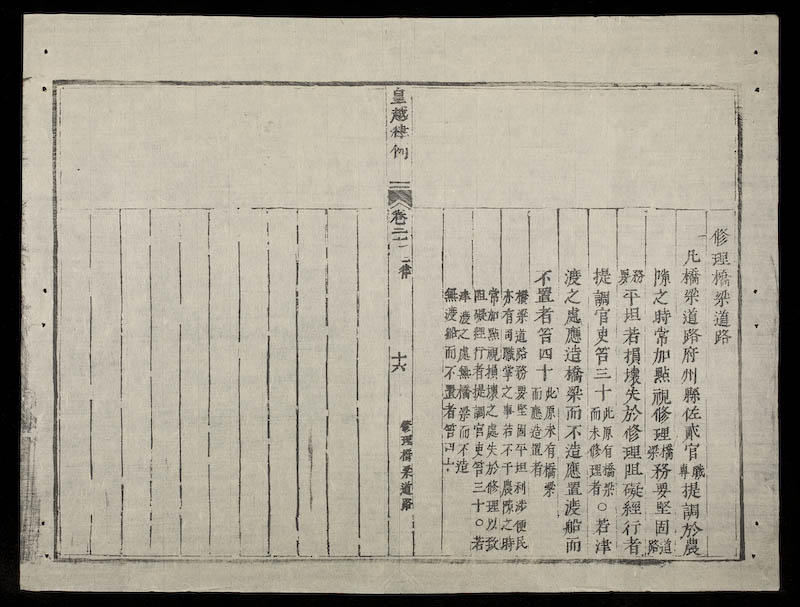 修理橋梁道路
一凡橋梁道路府州縣佐貳官職專提調於農
隙之時常加點視修理橋梁務要堅固道路
務要平坦若損壞失於修理阻礙經行者
提調官吏笞三十此原有橋梁而未修理者○若津
渡之處應造橋梁而不造應置渡船而
不置者笞四十此原未有橋梁而應造置者
橋梁道路務要堅固平坦利涉便民
亦有司職掌之事若不于農隙之時
常加點視損壞之處失於修理以致
阻礙經行者提調官吏笞三十○若
津渡之處無橋梁而不造
無渡船而不置者笞四十
皇越律例 二 卷二十一 工律 十六 修理橋梁道路